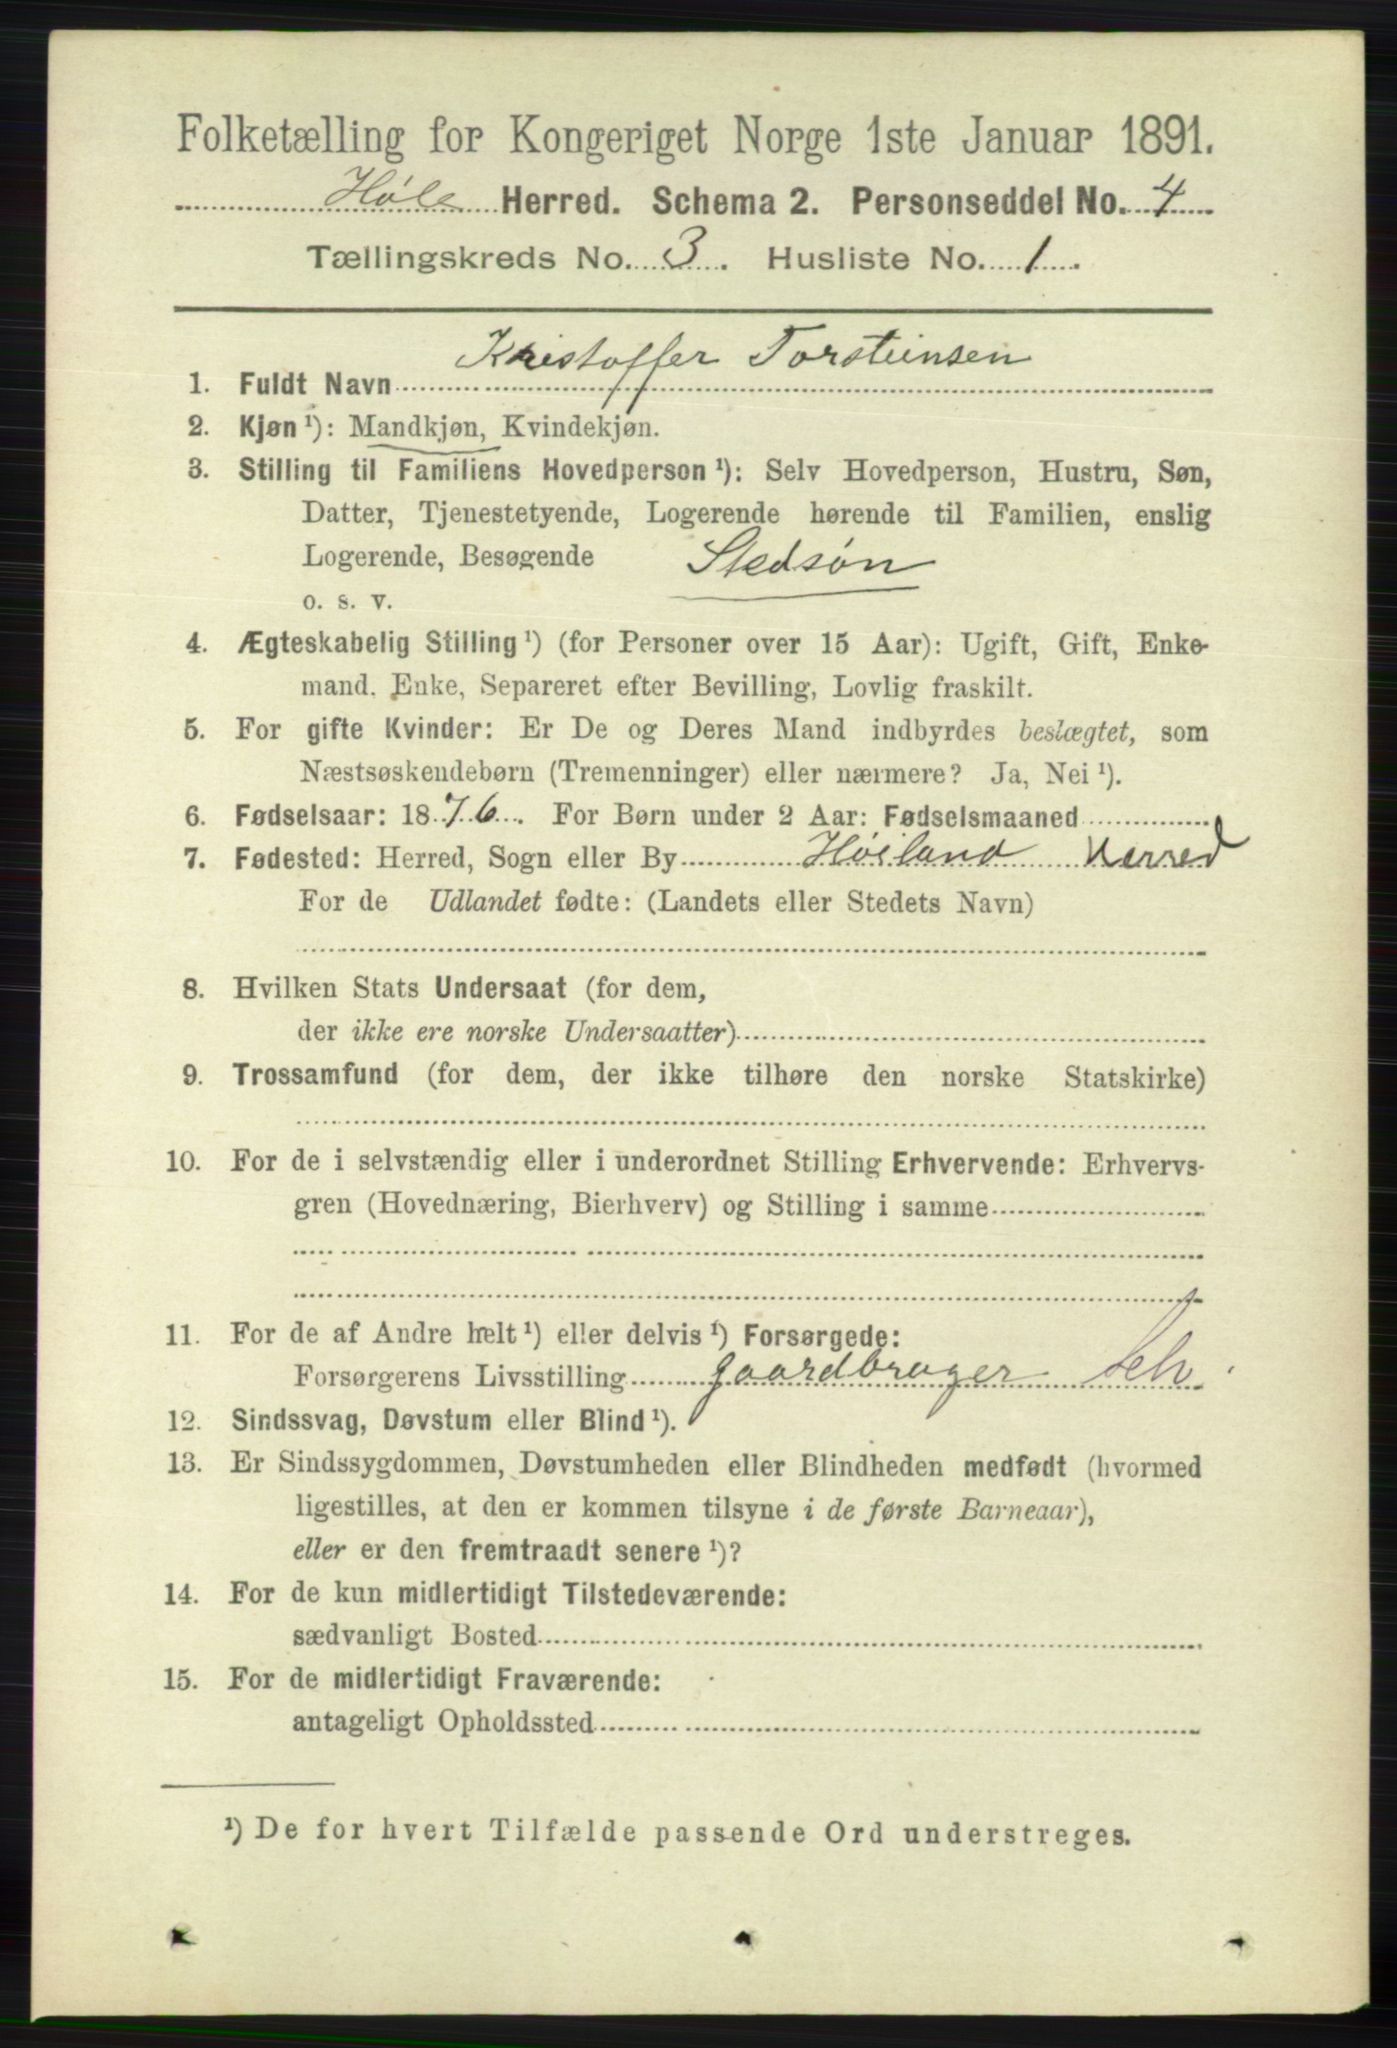 Folketælling for Kongeriget Norge 1ste Januar 1891.
Høle Herred. Schema 2. Personseddel No. 4
Tællingskreds No. 3. Husliste No. 1.
Kristoffer Torsteinsen
1. Fuldt Navn
2. Kjøn ¹): Mandkjøn, Kvindekjøn.
3. Stilling til Familiens Hovedperson ¹): Selv Hovedperson, Hustru, Søn,
Datter, Tjenestetyende, Logerende hørende til Familien, enslig
Logerende, Besøgende Stedsøn
o. s. v.
4. Ægteskabelig Stilling ¹) (for Personer over 15 Aar): Ugift, Gift, Enke-
mand, Enke, Separeret efter Bevilling, Lovlig fraskilt.
5. For gifte Kvinder: Er De og Deres Mand indbyrdes beslægtet, som
Næstsøskendebørn (Tremenninger) eller nærmere? Ja, Nei ¹).
6. Fødselsaar: 1876. For Børn under 2 Aar: Fødselsmaaned
7. Fødested: Herred, Sogn eller By Høiland Herred
For de Udlandet fødte: (Landets eller Stedets Navn)
8. Hvilken Stats Undersaat (for dem,
der ikke ere norske Undersaatter)
9. Trossamfund (for dem, der ikke tilhøre den norske Statskirke)
10. For de i selvstændig eller i underordnet Stilling Erhvervende: Erhvervs-
gren (Hovednæring, Bierhverv) og Stilling i samme
11. For de af Andre helt ¹) eller delvis ¹) Forsørgede:
Forsørgerens Livsstilling gaardbruger Selv
12. Sindssvag, Døvstum eller Blind ¹).
13. Er Sindssygdommen, Døvstumheden eller Blindheden medfødt (hvormed
ligestilles, at den er kommen tilsyne i de første Barneaar),
eller er den fremtraadt senere ¹)?
14. For de kun midlertidigt Tilstedeværende:
sædvanligt Bosted
15. For de midlertidigt Fraværende:
antageligt Opholdssted
¹) De for hvert Tilfælde passende Ord understreges.